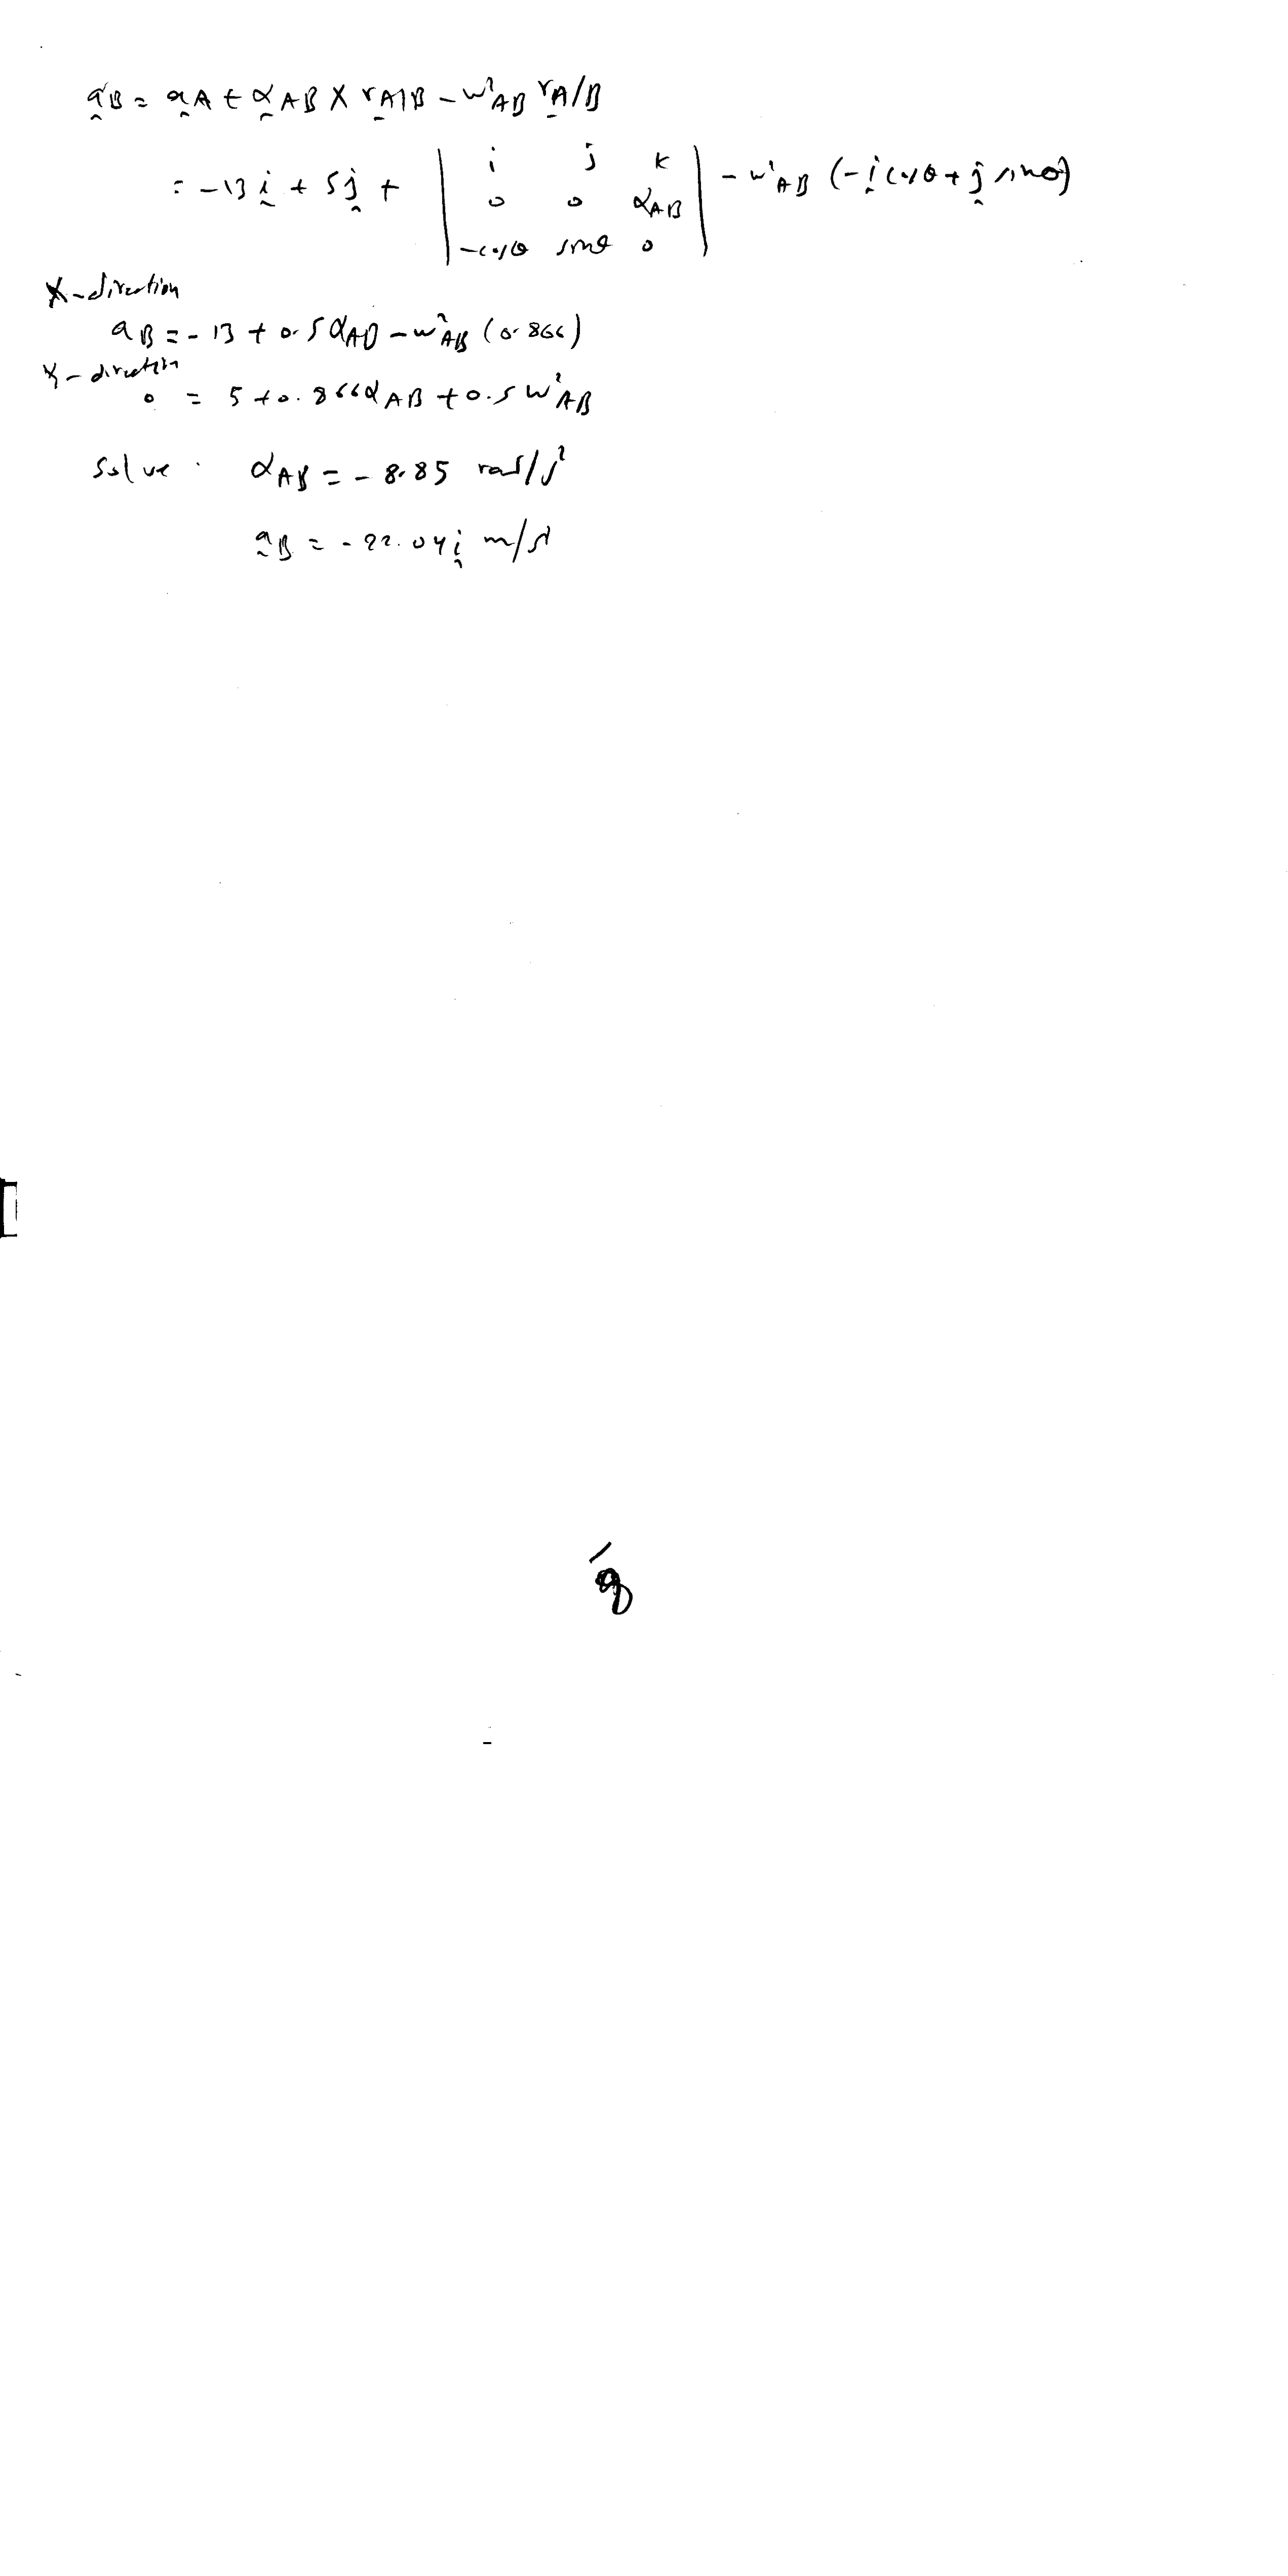 a_B = a_A + α_AB × r_A/B − ω²_AB r_A/B
= −13 i + 5 j + | i j k | − ω²_AB (−i cosθ + j sinθ)
0 0 α_AB
−cosθ sinθ 0
X-direction
a_B = −13 + 0.5 α_AB − ω²_AB (0.866)
Y-direction
0 = 5 + 0.866 α_AB + 0.5 ω²_AB
Solve . α_AB = − 8.85 rad/s²
a_B = − 22.04 i m/s²